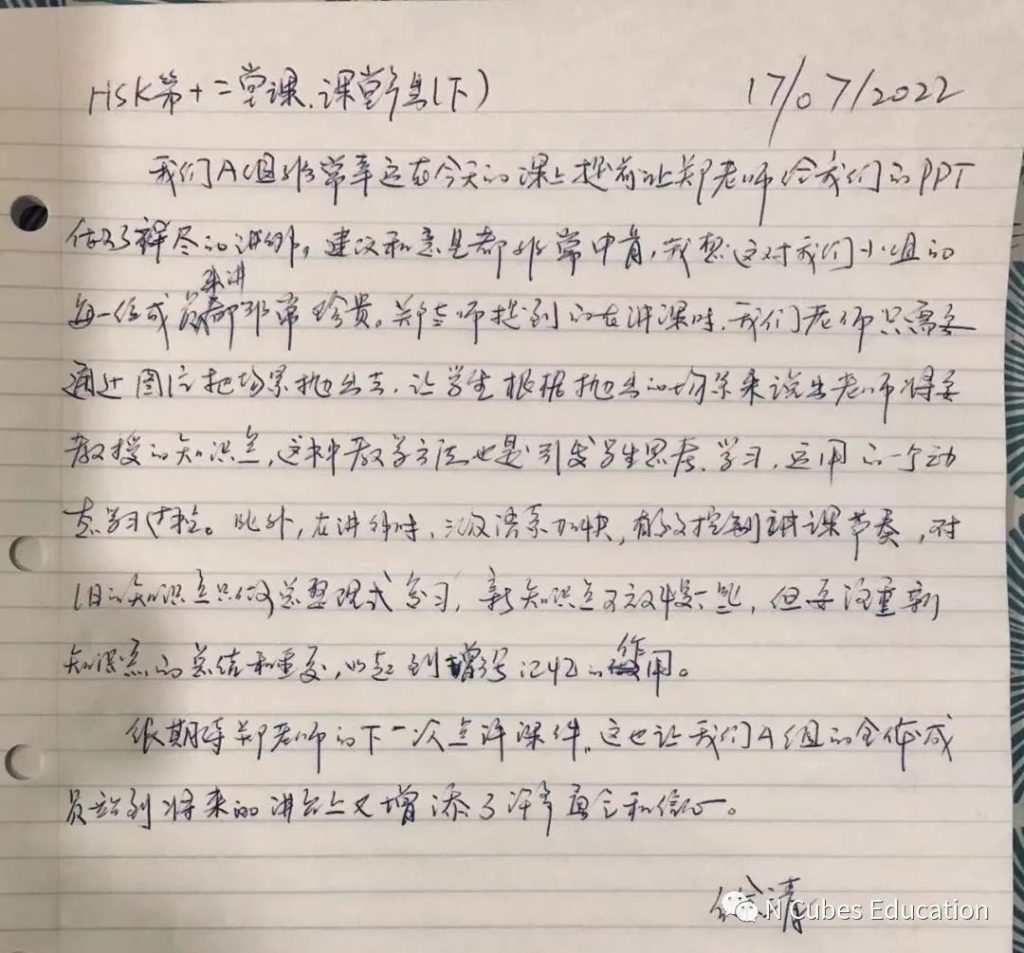 HSK第十二堂课.课堂作息(下) 17/07/2022
我们A组非常幸运在今天的课上提前让郑老师给我们的PPT
做了详尽的讲评。建议和意见都非常中肯,我想这对我们小组的
每一位成员来讲都非常珍贵。郑老师提到的在讲课时,我们老师只需要
通过图片把场景抛出去,让学生根据抛出的场景来说出老师将要
教授的知识点,这种教学方法也是引发学生思考、学习、运用的一个动
态学习过程。此外,在讲评时,三次语系加快,有效控制讲课节奏,对
旧的知识点只做总整理式复习,新知识点可放慢,但要注重新
知识点的总结和重复,以起到增强记忆的作用。
很期待郑老师的下一次点评课件。这也让我们A组的全体成
员站到将来的讲台上又增添了许多和信心。
徐清
N Cubes Education